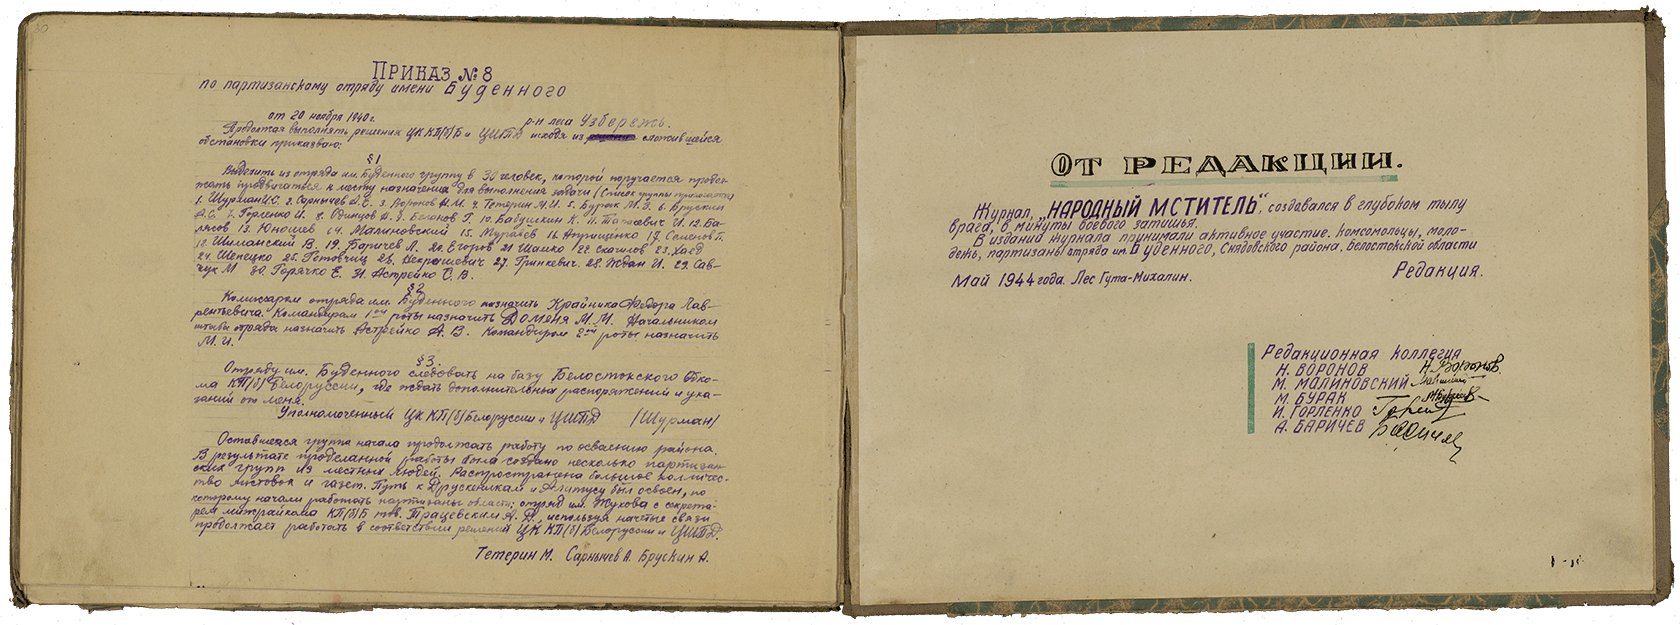 30
ПРИКАЗ № 8
по партизанскому отряду имени Буденного
от 20 ноября 1940 г. р-н леса Узбережь.
Продолжая выполнять решения ЦК КП(б)Б и ЦШПД исходя из сложившейся
обстановки приказываю:
§ 1
Выделить из отряда им. Буденного группу в 30 человек, которой поручается продол-
жать продвигаться к месту назначения для выполнения задачи (Список группы прилагается)
1. Шурман И.С. 2. Сарнычев А.Е. 3. Воронов Н.М. 4. Тетерин М.И. 5. Бурак М.Э. 6. Брускин
А.С. 7. Горленко И. 8. Одинцов А. 9. Боганов Г. 10. Бабушкин К. 11. Ташевич И. 12. Ба-
лясов 13. Юношев 14. Малиновский 15. Муравьев 16. Анрищенко 17. Семенов Г.
18. Шиманский В. 19. Баричев Л. 20. Егоров 21 Шашко 22 Скачков 23. Хаев
24. Шепецко 25. Готовчиц 26. Некрашевич 27. Гринкевич. 28. Ждан И. 29. Сав-
чук М 30. Горячко Е. 31. Астрейко С. В.
§ 2
Комиссаром отряда им. Буденного назначить Крайника Федора Лав-
рентьевича. Командиром 1ой роты назначить Доменя М.М. Начальником
штаба отряда назначить Астрейко А. В. Командиром 2ой роты назначить
М. И.
§ 3.
Отряду им. Буденного следовать на базу Белостокского Обко-
ма КП(б) Белоруссии, где ждать дополнительных распоряжений и ука-
заний от меня.
Уполномоченный ЦК КП(б) Белоруссии и ЦШПД (Шурман)
Оставшаяся группа начала продолжать работу по освоению района.
В результате проделанной работы была создано несколько партизан-
ских групп из местных людей. Распространена большое количес-
тво листовок и газет. Путь к Друскеникам и Алитусу был освоен, по
которому начали работать партизаны области: отряд им. Жукова с секрета-
рем межрайкома КП(б)Б тов. Трацевским А. Д., используя начатые связи
продолжает работать в соответствии решений ЦК КП(б) Белоруссии и ЦШПД.
Тетерин М. Сарнычев А. Брускин А.
ОТ РЕДАКЦИИ.
Журнал, „НАРОДНЫЙ МСТИТЕЛЬ", создавался в глубоком тылу
врага, в минуты боевого затишья.
В издании журнала принимали активное участие. Комсомольцы, моло-
дежь, партизаны отряда им. Буденного, Снядовского района. Белостокской области
Май 1944 года. Лес Гута-Михалин. Редакция.
Редакционная коллегия
Н. ВОРОНОВ Н. Воронов.
М. МАЛИНОВСКИЙ
М. БУРАК
И. ГОРЛЕНКО
А. БАРИЧЕВ Баричев